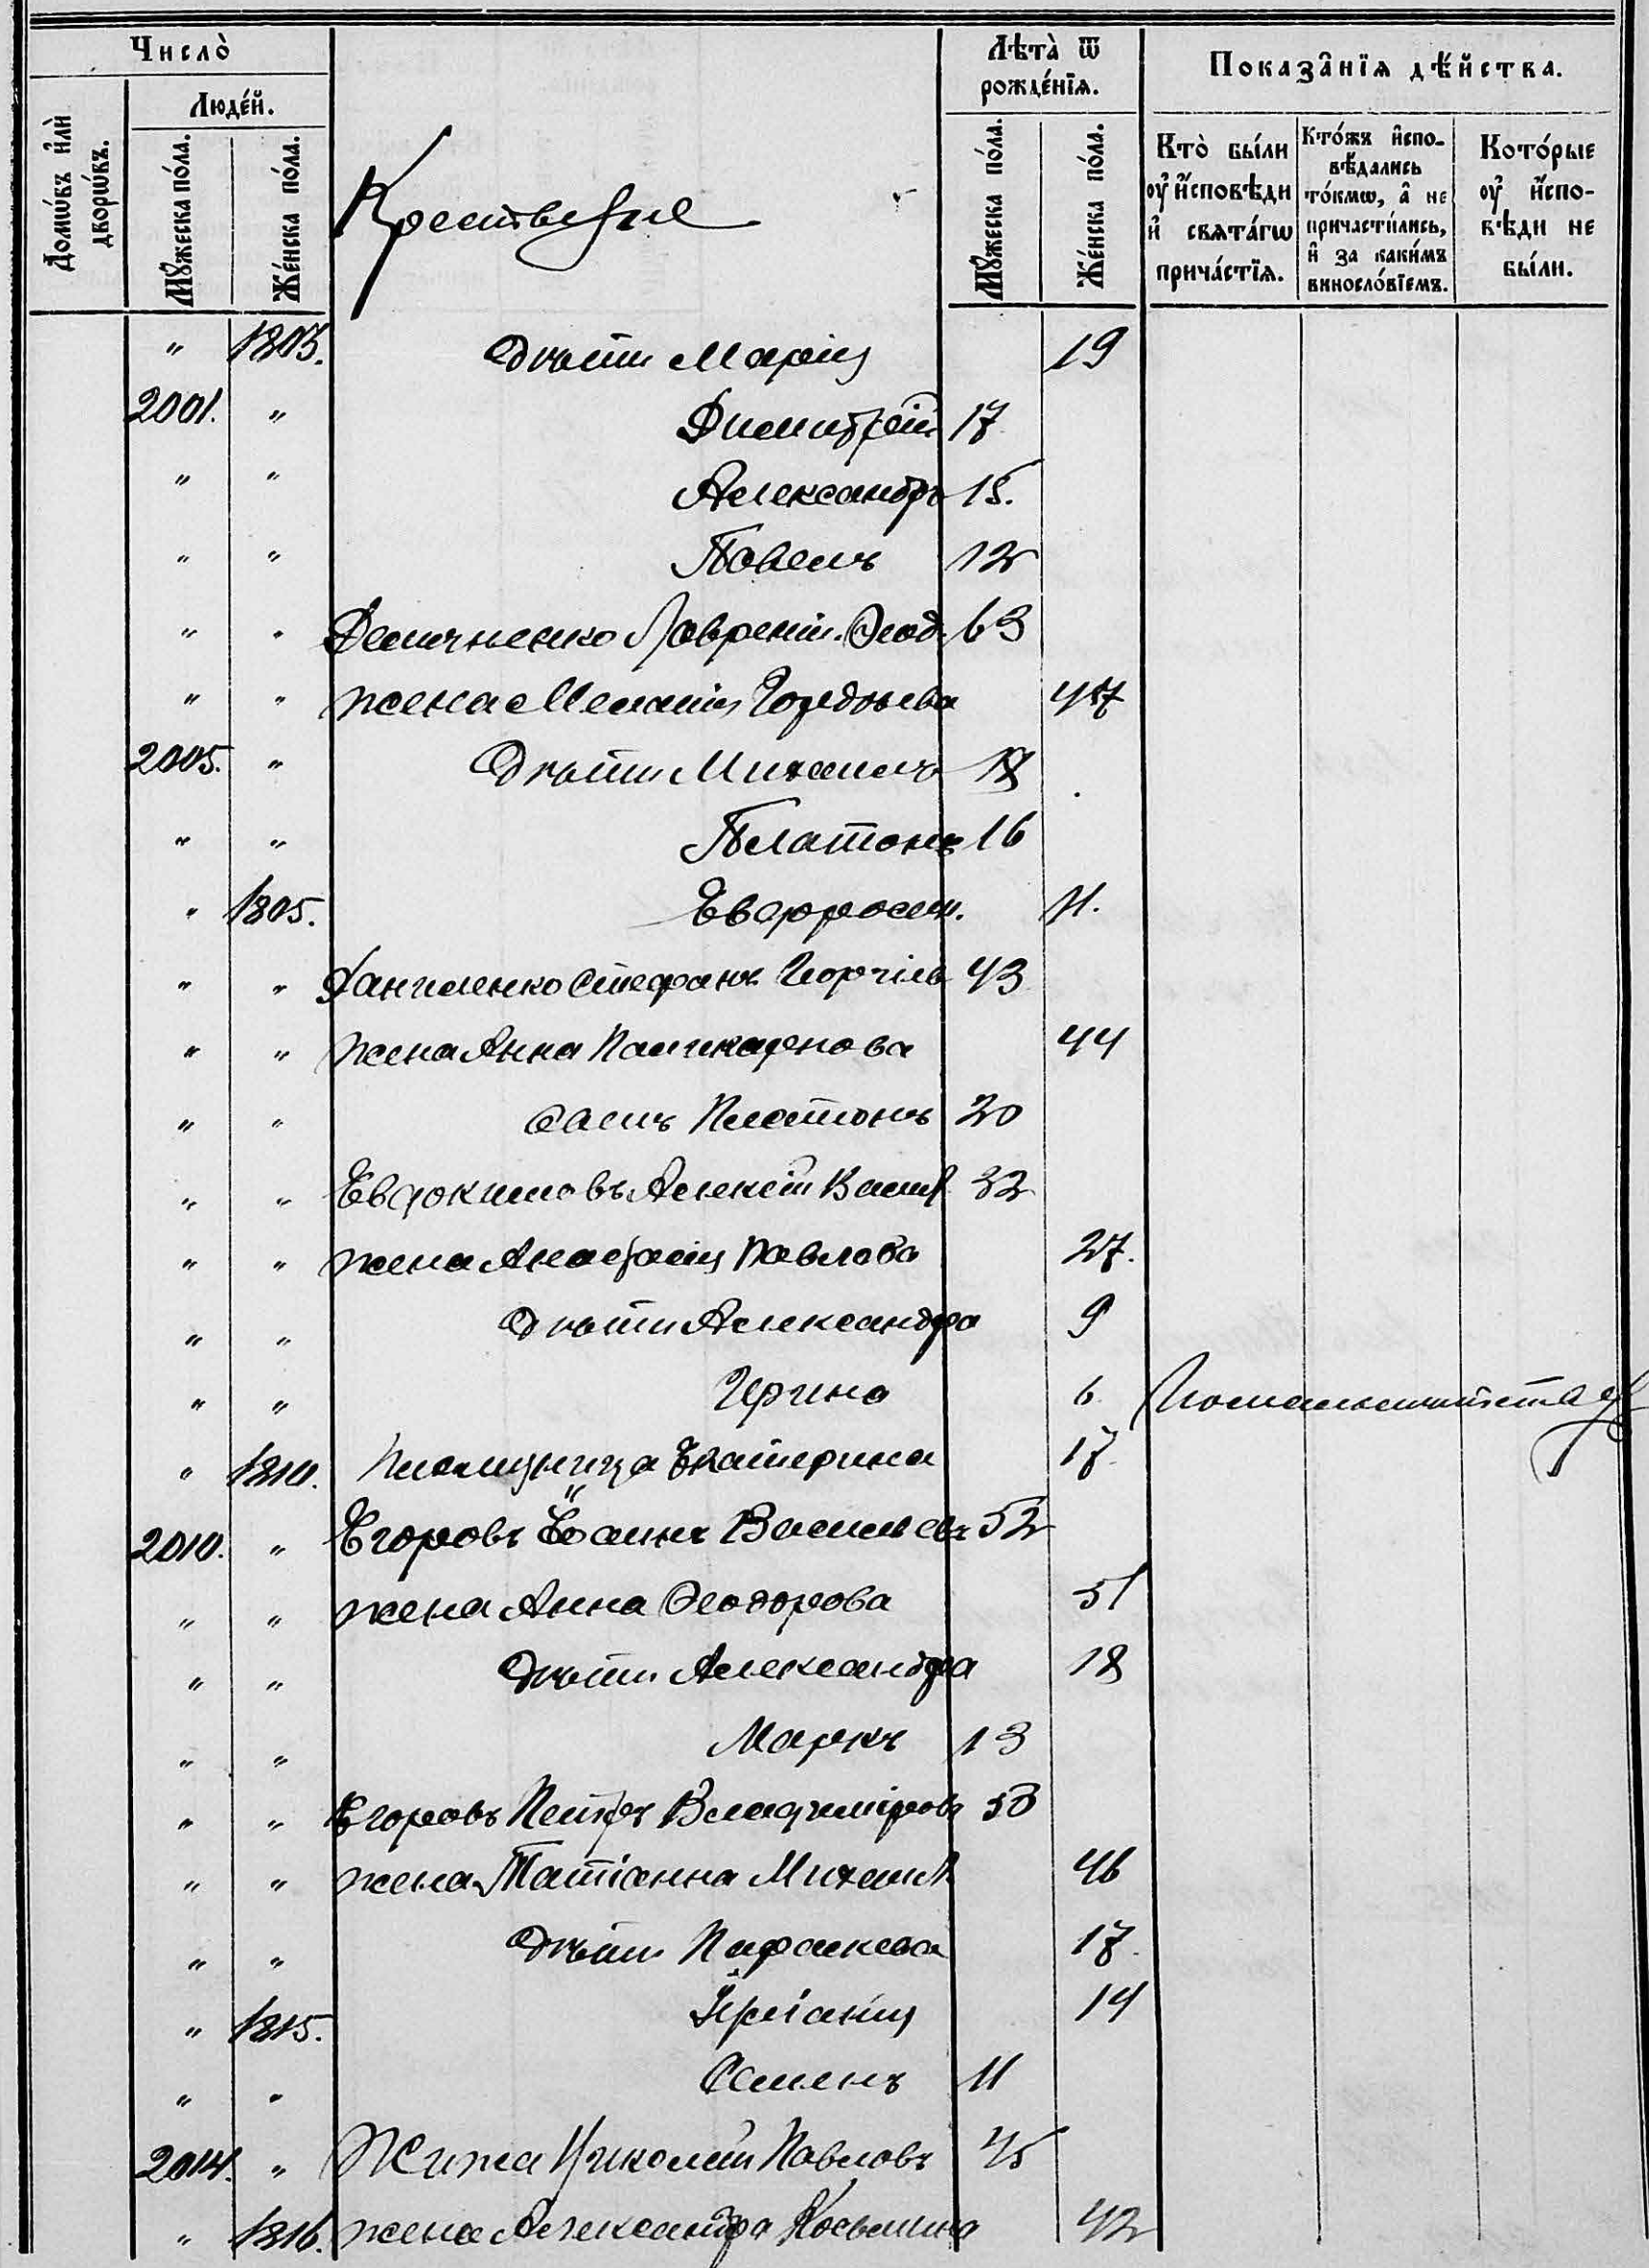 Число̀
Людéй.
Домѡ́въ и҆лѝ дворѡ́въ.
Мꙋ́жеска по́ла.
Же́нска по́ла.
Крестьяне
Лѣта̀ ѿ
рожде́нїѧ.
Мꙋ́жеска по́ла.
Же́нска по́ла.
Показа̑нїѧ дѣ́йства.
Кто̀ бы́ли
оу҆ и҆́сповѣди
и҆ свѧта́гѡ
прича́стїѧ.
Кто́жъ и҆спо-
вѣ́дались
то́кмѡ, а҆ не
причасти́лись,
и҆ за каки́мъ
виносло́вїемъ.
Кото́рые
оу҆ и҆спо-
вѣди не
бы́ли.
" 1803. Дѣти Марія 19
2001. " Димитрій 17
" " Александръ 15.
" " Павелъ 12
" " Лаврентій Ѳеод. 63
" " жена Меланія Гордѣева 47
2005. " Дѣти Михаилъ
" " Платонъ 16
" 1805. Евфросин. 11.
" " Даниленко Стефанъ Георгіев 43
" " жена Анна Поликарпова 44
" " сынъ Платонъ 20
" " Евдокимовъ Алексій Васил 32
" " жена Анастасія Павлова 27.
" " Дѣти Александра 9
" " Ирина 6
" 1810. Племяница Екатерина 17.
2010. " Егоровъ Іоаннъ Васильевъ 52
" " жена Анна Ѳеодорова 51
" " Дѣти Александра 18
" " Маркъ 13
" " Егоровъ Петръ Владиміровъ 50
" " жена Татіанна Михаил 46
" " Дѣти Параскева 17.
" 1815. Іуліанія 14
" " Симеонъ 11
2014. " Жижа Николай Павловъ 45
" 1816. жена Александра Косьмина 42